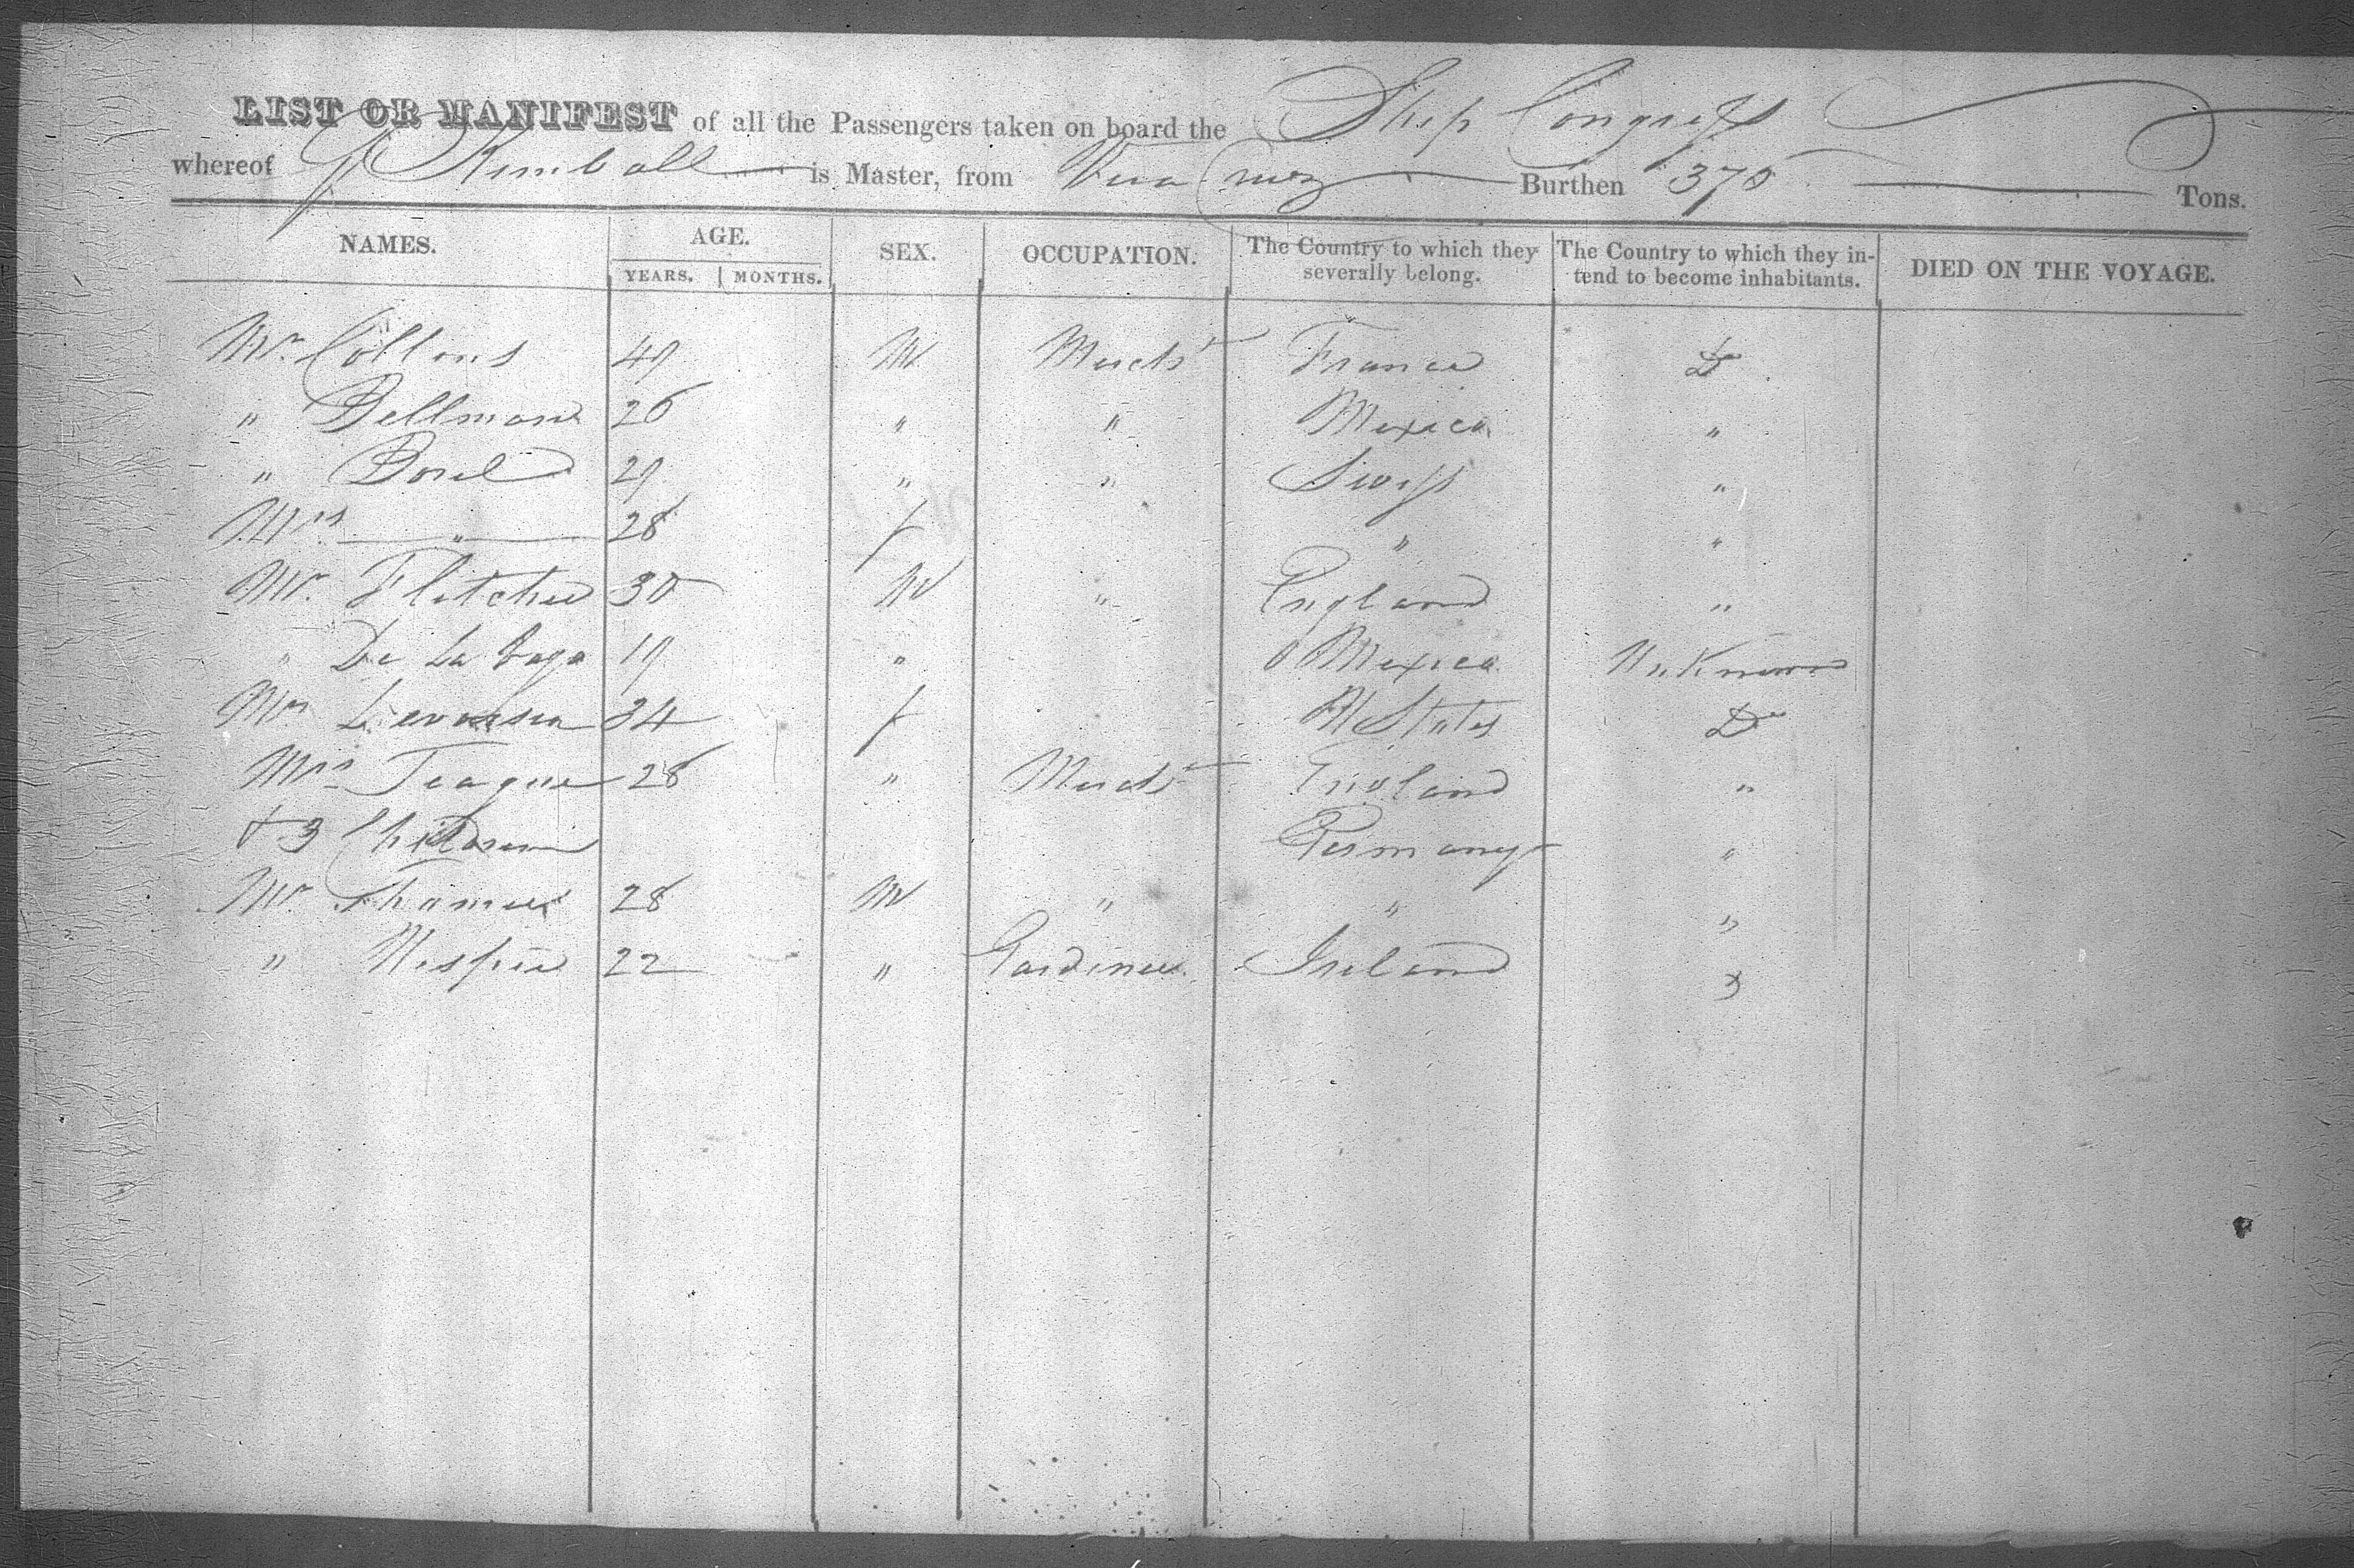 LIST OR MANIFEST of all the Passengers taken on board the Ship Congress
whereof J Kimball is Master, from Vera Cruz Burthen 375 Tons.
NAMES. AGE. SEX. OCCUPATION. The Country to which they severally belong. The Country to which they intend to become inhabitants. DIED ON THE VOYAGE.
YEARS. MONTHS.
Mr. Collins 49 M Mercht France Do
" Bellmann 26 " " Mexico "
" Borel 29 " " Swiss "
Mrs. " 28 f " "
Mr. Fletcher 30 M " England "
" De La Vega 19 " Mexico Unknown
Mrs 34 f U States Do
Mrs Teague 28 " Mercht England "
+ 3 Children Germany "
Mr. Thomas 28 M " " "
" 22 " Gardiner Ireland "